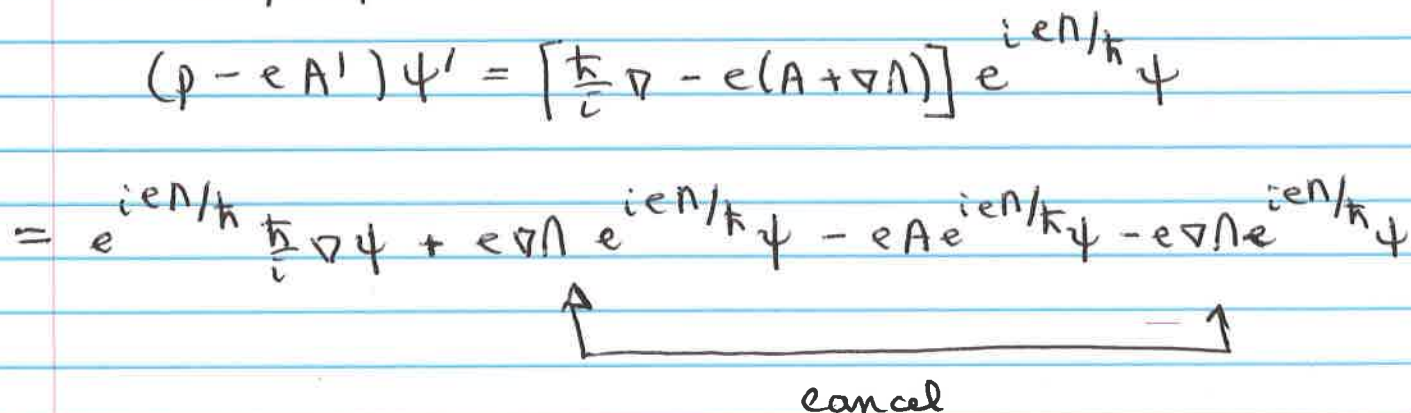 (p - e A') ψ' = [ħ/i ∇ - e(A + ∇Λ)] e^{ieΛ/ħ} ψ
= e^{ieΛ/ħ} ħ/i ∇ψ + e∇Λ e^{ieΛ/ħ} ψ - eA e^{ieΛ/ħ} ψ - e∇Λ e^{ieΛ/ħ} ψ
cancel